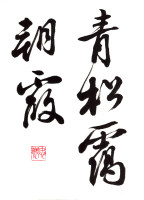 青松靄
朝霞